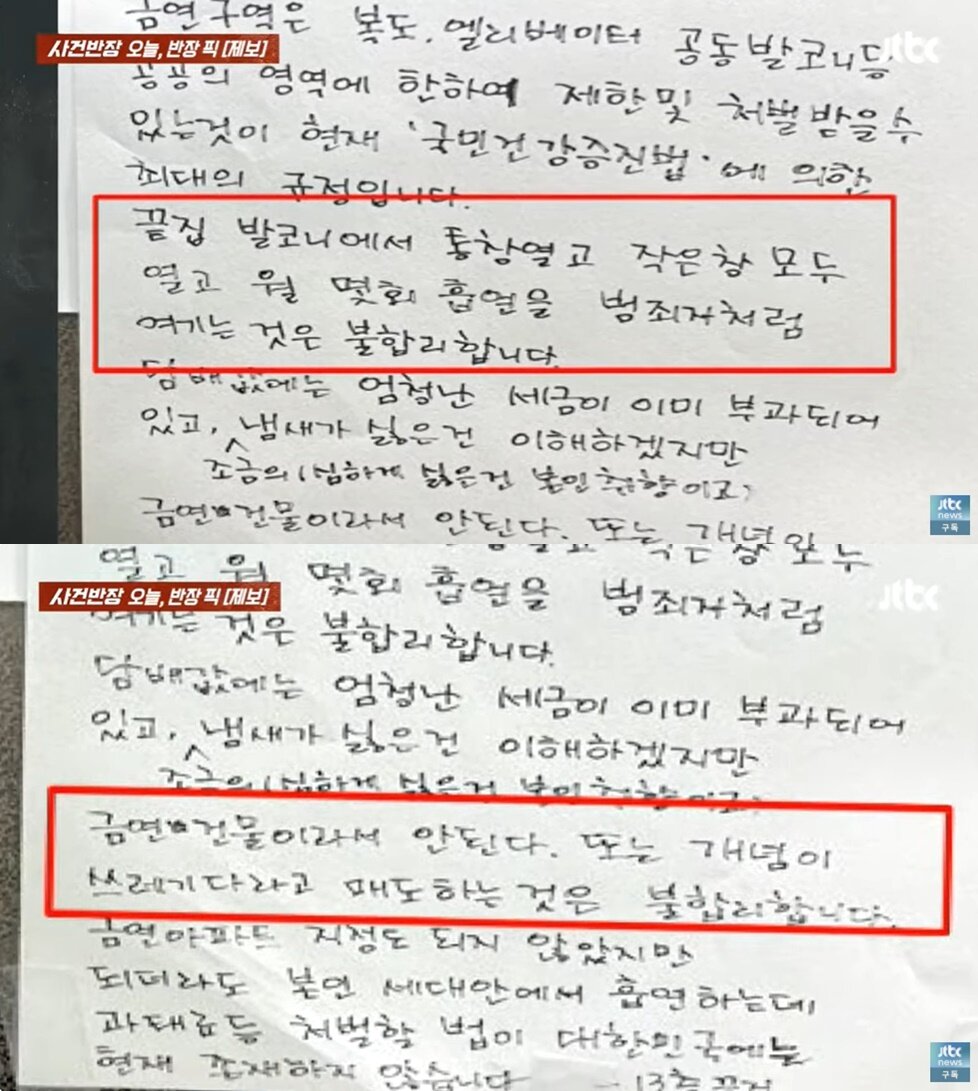 금연구역은 복도, 엘리베이터 공동발코니등
사건반장 오늘, 반장 픽 [제보]
jtbc
공공의 영역에 한하여 제한및 처벌받을수
있는것이 현재 '국민건강증진법'에 의한
최대의 규정입니다.
끝집 발코니에서 통창열고 작은창 모두
열고 월 몇회 흡연을 범죄자처럼
여기는 것은 불합리합니다.
담배값에는 엄청난 세금이 이미 부과되어
있고, 냄새가 싫은건 이해하겠지만
조금의(심하게 싫은건 본인취향이고)
금연건물이라서 안된다. 또는 개념
jtbc
news
구독
열고 월 몇회 흡연을 범죄자처럼
사건반장 오늘, 반장 픽 [제보]
jtbc
여기는 것은 불합리합니다.
담배값에는 엄청난 세금이 이미 부과되어
있고, 냄새가 싫은건 이해하겠지만
조금의(심하게 싫은건 본인취향이고)
금연건물이라서 안된다. 또는 개념이
쓰레기다라고 매도하는 것은 불합리합니다.
금연아파트 지정도 되지 않았지만
되더라도 본인 세대안에서 흡연하는데
과태료등 처벌할 법이 대한민국에는
현재 존재하지 않습니다
jtbc
news
구독